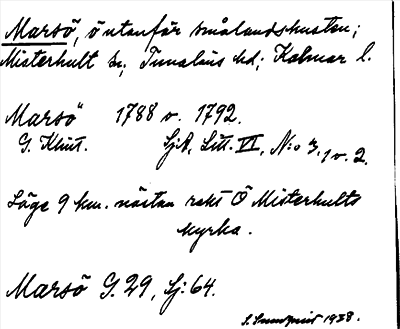 Marsö, ö utanför smålandskusten;
Misterhult sn, Tunaläns hd; Kalmar l.
Marsö 1788 o. 1792.
G. Klint. Sjk, Litt. VI, N:o 3, 1 o. 2.
Läge 9 km. nästan rakt Ö Misterhults
kyrka.
Marsö G. 29, Sj: 64.
S. Sundqvist 1938.